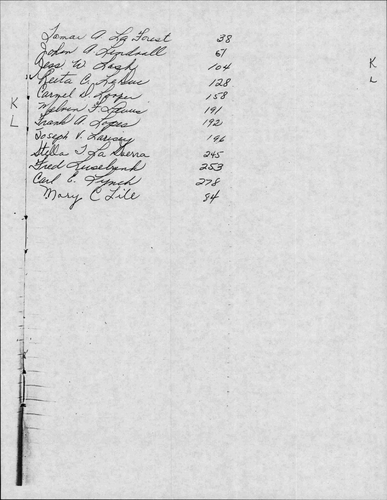 Lamar A La Forest 38
John A Lindvall 67
Jess W. Lash 104
Resta C. LaDuc 128
Carmel D. Looper 158
Melvin F Lewis 191
Frank A. Lopes 192
Joseph V. Larisey 196
Stella T La Sierra 245
Fred Lusebrink 253
Carl E. Lynch 278
Mary C Lile 84
K
L
K
L